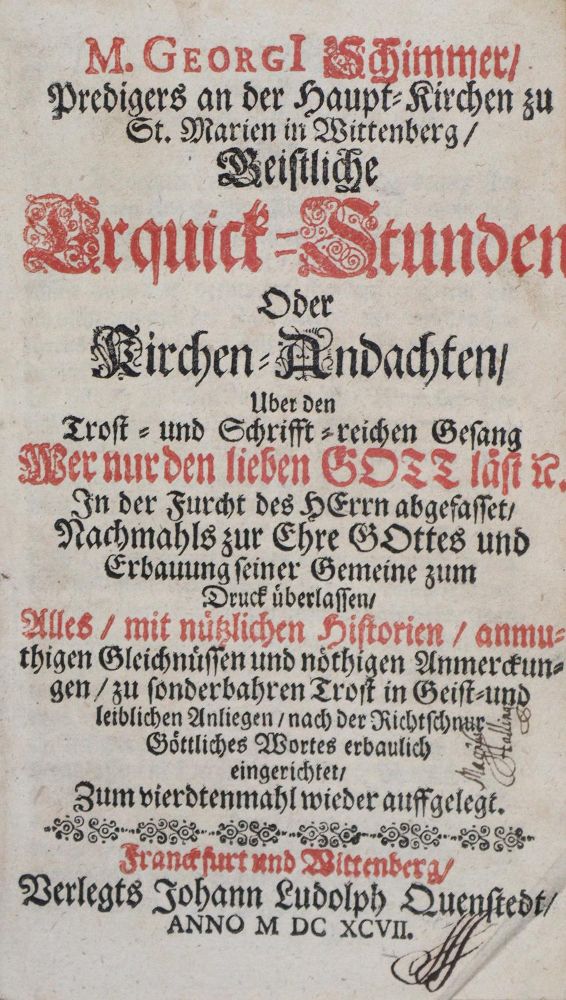 M. GEORGI Schimmer/
Predigers an der Haupt-Kirchen zu
St. Marien in Wittenberg/
Geistliche
Erquick-Stunden
Oder
Kirchen-Andachten/
Uber den
Trost- und Schrifft-reichen Gesang
Wer nur den lieben GOTT läst ꝛc.
In der Furcht des HErrn abgefasset/
Nachmahls zur Ehre GOttes und
Erbauung seiner Gemeine zum
Druck überlassen/
Alles/ mit nützlichen Historien/ anmu-
thigen Gleichnüssen und nöthigen Anmerckun-
gen/ zu sonderbahren Trost in Geist- und
leiblichen Anliegen/ nach der Richtschnur
Göttliches Wortes erbaulich
eingerichtet/
Zum vierdtenmahl wieder auffgelegt.
Franckfurt und Wittenberg/
Verlegts Johann Ludolph Quenstedt/
ANNO M DC XCVII.